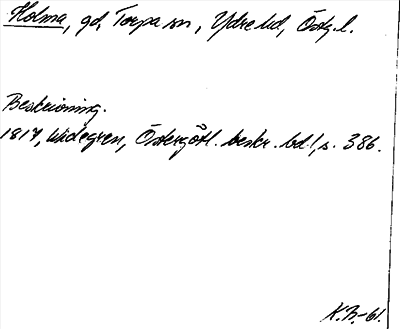 Holma, gd, Torpa sn, Ydre hd, Östg.l.
Beskrivning.
1817, Widegren, Östergötl. beskr. bd 1, s. 386.
K.B.-61.